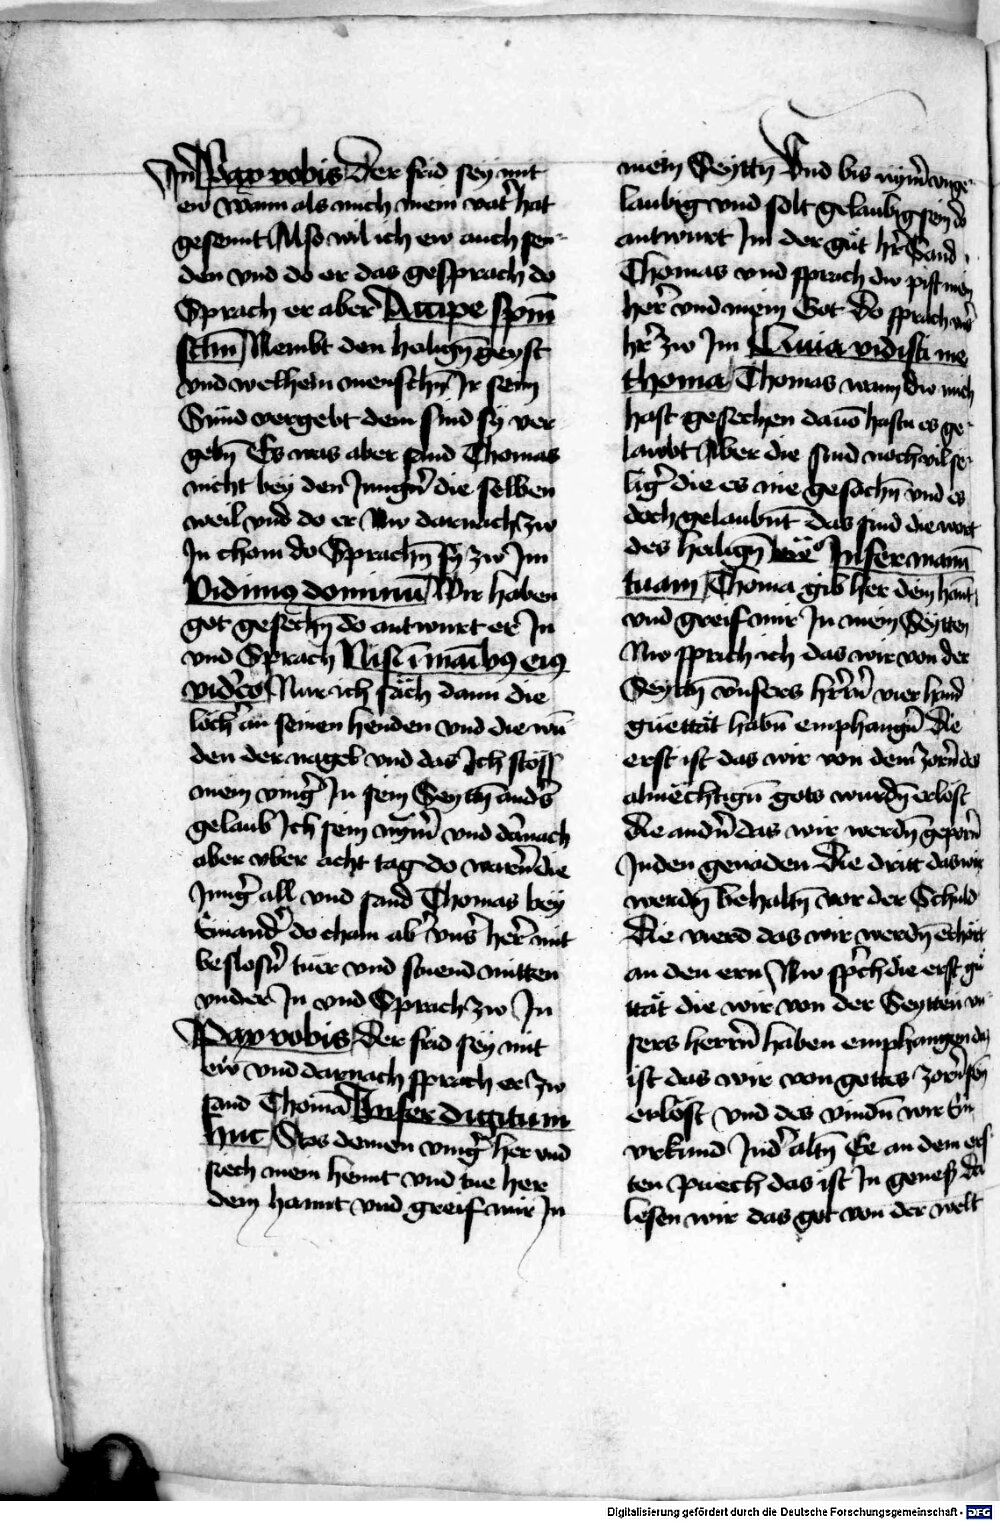 Jn̄ Pax vobis Der frid seӱ mit
ew wann als mich mein vat̄ hat
gesennt Also wil ich ew auch sen-
den vnd do er das gesprach do
Sprach er aber Accipe spm̄
sctm̄ Nembt den heilign̄ geyst
vnd welhem menschn̄ Jr sein
Sünd vergebt dem sind sӱ ver
gebn̄ Es was aber sand Thomas
nicht beӱ den Jungn̄ die selben
weil vnd do er Nw darnach zw
Jn cham do Sprachn̄ sӱ zw Jm
Vidimus dominū Wir haben
got gesechn̄ do antwurt er Jn
vnd Sprach Nisi ī maībꝰ eiꝰ
videro Nur ich säch dann die
löch̄ an seinen henden vnd die wū
den der nagel vnd das Jch stöss
mein vinḡ Jn sein Seyttn̄ and̄s
gelaub Jch sein nym̄ vnd darnach
aber vber acht tag do warn̄ die
Junḡ all vnd sand Thomas beӱ
Einand̄ do cham ab̄ vns̄ her̄ mit
beslosn̄ tuer vnd stuend mitten
vnder Jn vnd Sprach zw Jn
Pax vobis Der frid seӱ mit
ew vnd darnach sprach er zw
sand Thoma Jnfer digitum
huc Stos deinen vinḡ her vnd
sech mein hennt vnd tue her
dein hannt vnd greif mir Jn
mein Seyttn̄ Vnd bis nym̄ vnge-
laubig vnd solt gelaubig sein do
antwurt Jm der güt hr̄ Sand
Thomas vnd sprach dw pist mein
her̄ vnd mein Got Do sprach vns̄
hr̄ zw Jm Quia vidisti me
thoma Thomas wann dw mich
hast gesechen dauō hastu es ge-
lawbt Aber die sind noch vil se-
liḡ die es nie gesachn̄ vnd es
doch gelaubnt das sind die wort
des heilign̄ Jnfer manū
tuam Thoma gib her dein hant
vnd greif mir Jn mein Seytten
Nw sprich ich das wir von der
Seyttn̄ vnsers hr̄n̄ vier hand
guettät habn̄ emphangn̄ die
erst ist das wir von dem zorn̄ des
almëchtign̄ gots wurdn̄ erlöst
die andn̄ das wir werdn̄ geporn̄
Jn den genaden Die dritt das wir
werdn̄ behaltn̄ vor der Schuld
Die vierd das wir werdn̄ erhört
an den ern Nw spr̄ch die erst gü
ttät die wir von der Seytten vn-
sers herrn̄ haben emphangen das
ist das wir von gottes zorn̄ sein
erlöst vnd des vindn̄ wir ein
vrkund Jn d̄ altn̄ Ee an dem ers
ten puech das ist Jn genesi da
lesen wir das got von der welt
Digitalisierung gefördert durch die Deutsche Forschungsgemeinschaft - DFG